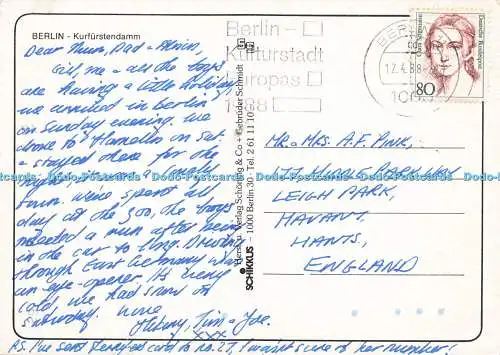 BERLIN - Kurfürstendamm
Dear Mum, Dad +
Gil, me + all the boys
are having a little holiday
we arrived in Berlin
on Sunday evening. We
drove to Hamelin on Sat.
+ stayed there for the
night
town. We've spent all
day at the zoo, the boys
needed a run after being
in the car so long. Driving
through East Germany was
an eye-opener. Its very
cold, we had snow on
Saturday. Love
Tim + Joe.
xxx
P.S. I've sent card to no. 27, I wasn't sure of her number!
SCHIKKUS - 1000 Berlin 30 - Tel. 2 61 11 10
Berlin -
Kulturstadt
Europas
1988
BERLIN
12.4.88
1000
Deutsche Bundespost
80
MR + MRS. A.F. PINK,
LEIGH PARK,
HAVANT,
HANTS,
ENGLAND